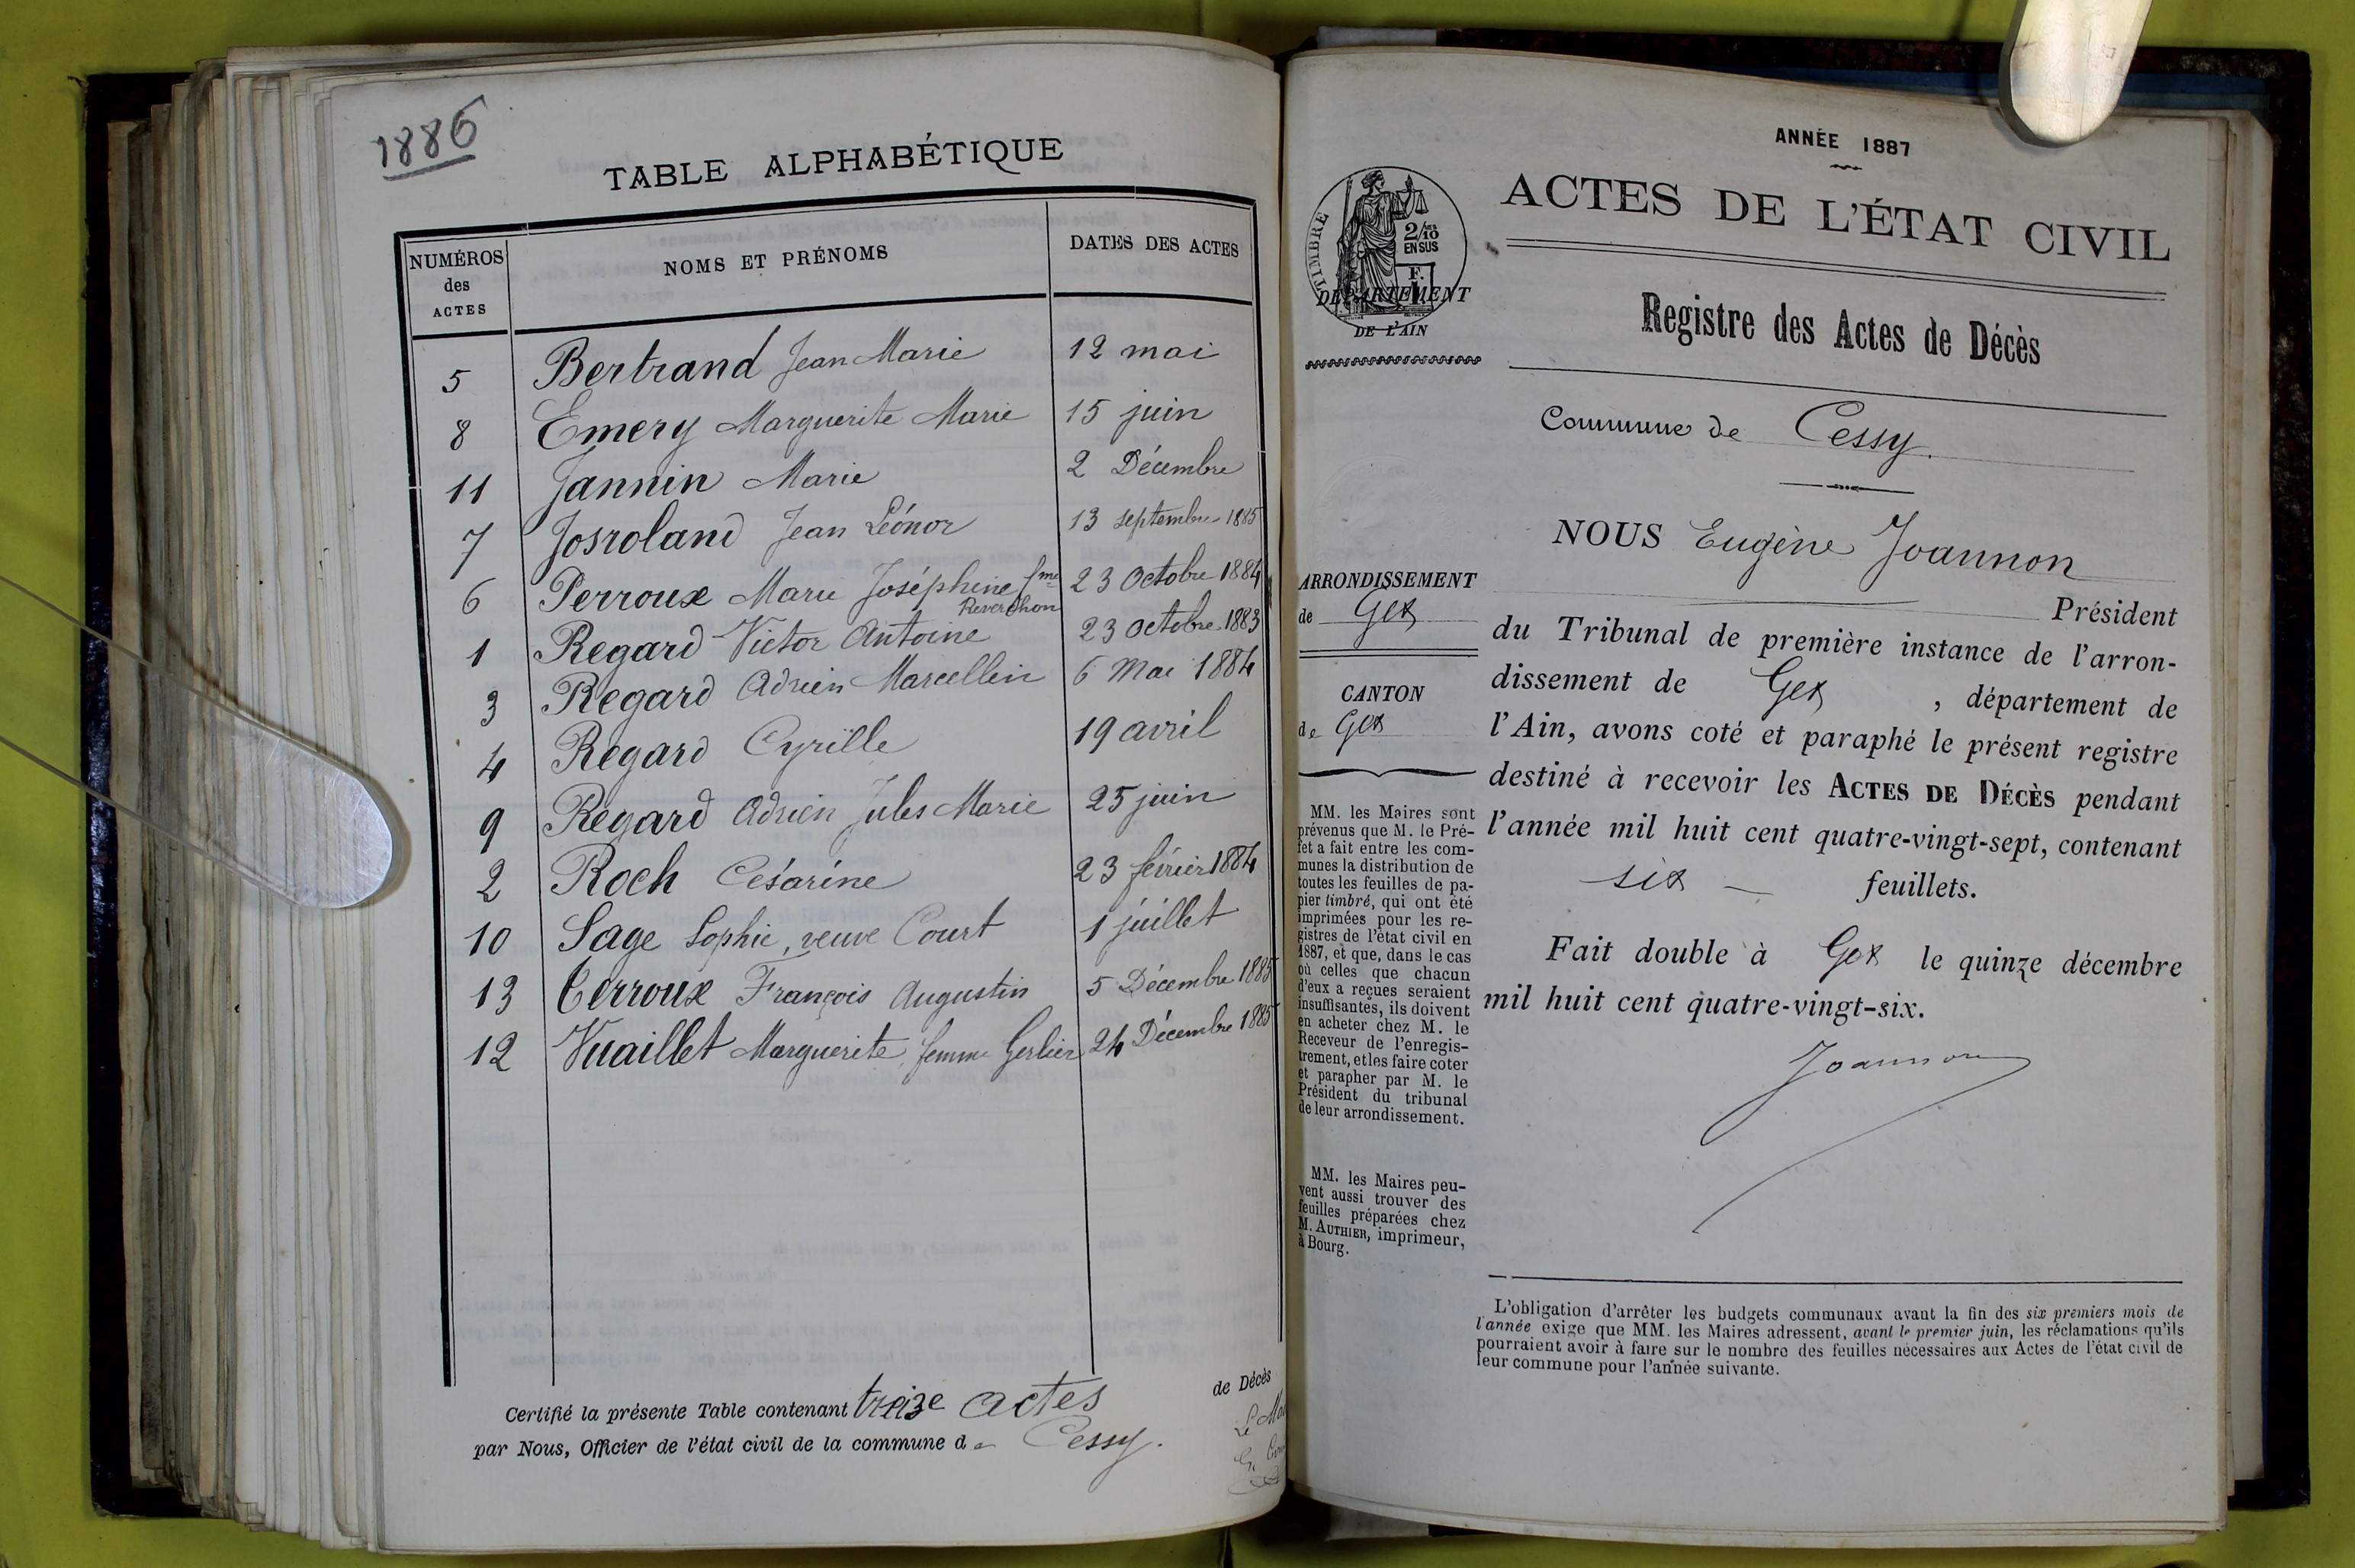 1886
TABLE ALPHABÉTIQUE
NUMÉROS des ACTES NOMS ET PRÉNOMS DATES DES ACTES
5 Bertrand Jean Marie 12 mai
8 Emery Marguerite Marie 15 juin
11 Jannin Marie 2 Décembre
7 Josroland Jean Léonor 13 septembre 1885
6 Perroux Marie Joséphine fme Reverchon 23 Octobre 1884
1 Regard Victor Antoine 23 octobre 1883
3 Regard Adrien Marcellin 6 Mai 1884
4 Regard Cyrille 19 avril
9 Regard Adrien Jules Marie 25 juin
2 Roch Césarine 23 février 1884
10 Sage Sophie, veuve Court 1 juillet
13 Terroux François Augustin 5 Décembre 1885
12 Vuaillet Marguerite, femme Gerlier 24 Décembre 1885
Certifié la présente Table contenant treize actes de Décès
par Nous, Officier de l'état civil de la commune de Cessy.
ANNÉE 1887
ACTES DE L'ÉTAT CIVIL
TIMBRE
2/10
EN SUS
DÉPARTEMENT
DE L'AIN
Registre des Actes de Décès
Commune de Cessy.
ARRONDISSEMENT
de Gex
CANTON
de Gex
MM. les Maires sont
prévenus que M. le Pré-
fet a fait entre les com-
munes la distribution de
toutes les feuilles de pa-
pier timbré, qui ont été
imprimées pour les re-
gistres de l'état civil en
1887, et que, dans le cas
où celles que chacun
d'eux a reçues seraient
insuffisantes, ils doivent
en acheter chez M. le
Receveur de l'enregis-
trement, et les faire coter
et parapher par M. le
Président du tribunal
de leur arrondissement.
MM. les Maires peu-
vent aussi trouver des
feuilles préparées chez
M. AUTHIER, imprimeur,
à Bourg.
NOUS Eugène Joannon
Président
du Tribunal de première instance de l'arron-
dissement de Gex, département de
l'Ain, avons coté et paraphé le présent registre
destiné à recevoir les ACTES DE DÉCÈS pendant
l'année mil huit cent quatre-vingt-sept, contenant
six feuillets.
Fait double à Gex le quinze décembre
mil huit cent quatre-vingt-six.
Joannon
L'obligation d'arrêter les budgets communaux avant la fin des six premiers mois de
l'année exige que MM. les Maires adressent, avant le premier juin, les réclamations qu'ils
pourraient avoir à faire sur le nombre des feuilles nécessaires aux Actes de l'état civil de
leur commune pour l'année suivante.